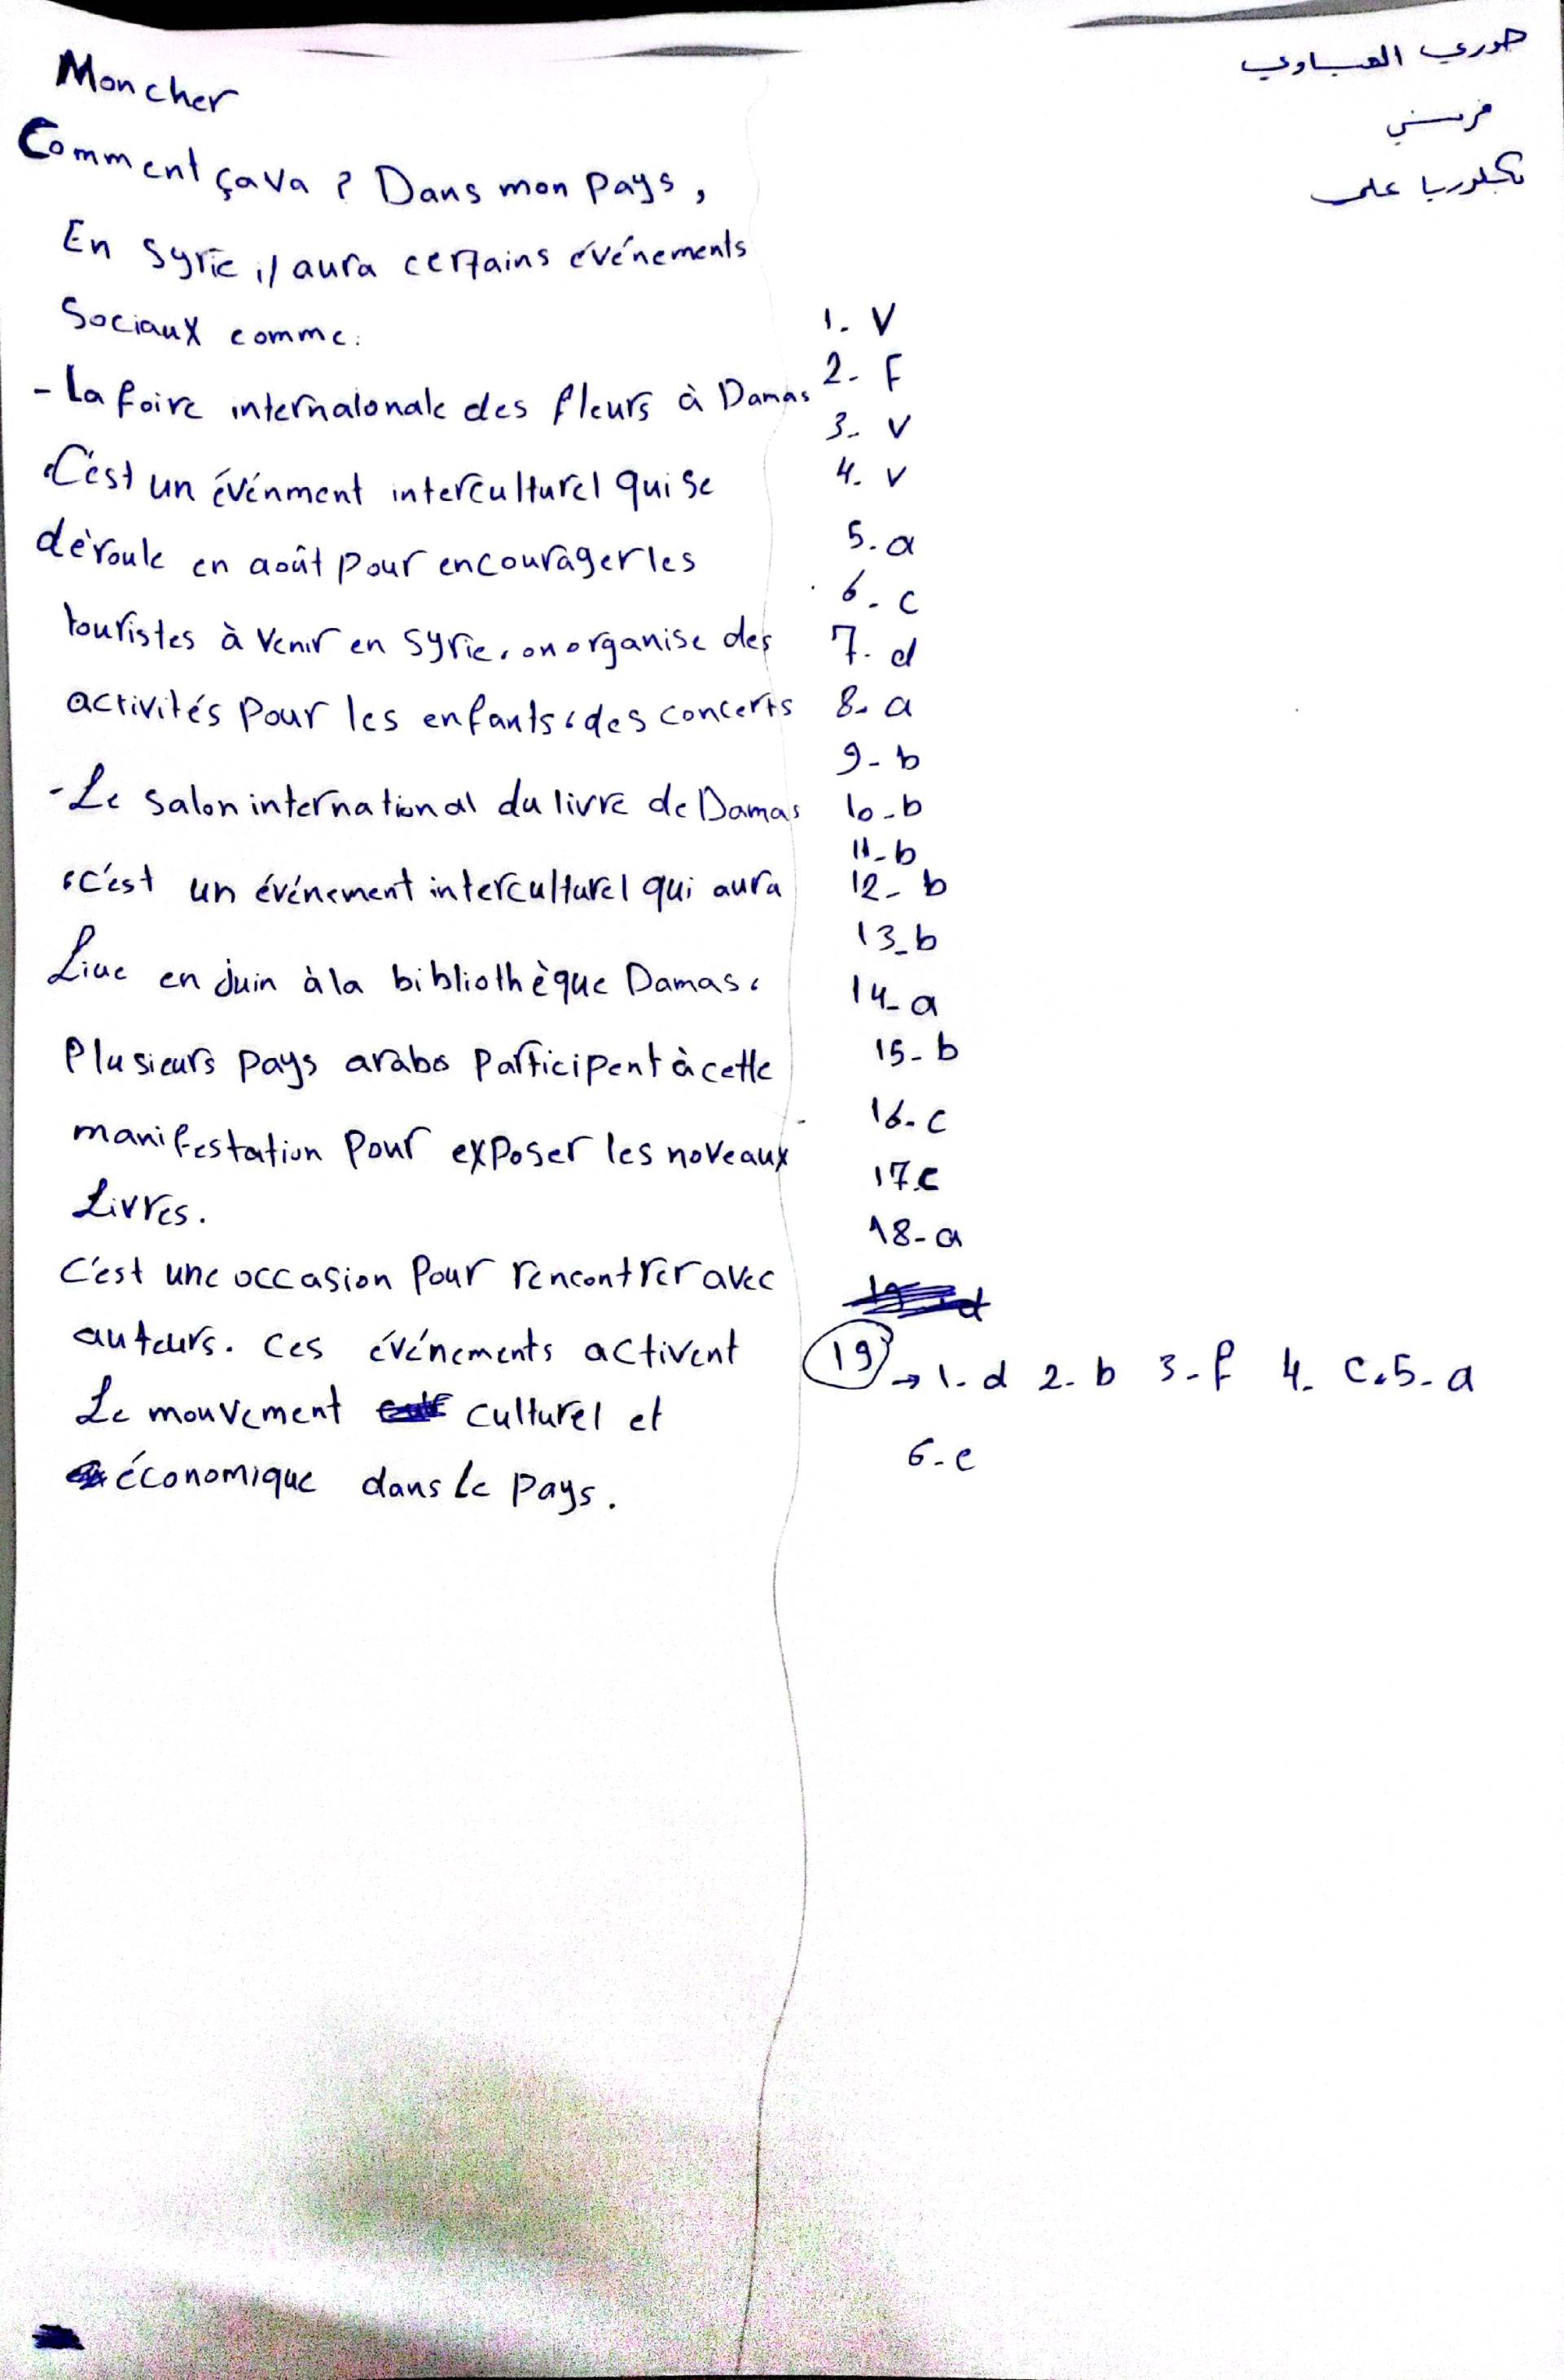 حوري العيساوي
فرنسي
بكلوريا علمي
Mon cher
Comment ça va ? Dans mon pays,
En Syrie il aura certains événements
Sociaux comme:
- La foire internalonale des fleurs à Damas
، C'est un événment interculturel qui se
déroule en août pour encourager les
touristes à venir en Syrie، on organise des
activités pour les enfants، des concerts
- Le salon international du livre de Damas
، c'est un événement interculturel qui aura
Liue en juin à la bibliothèque Damas،
Plusieurs pays arabs participent à cette
manifestation pour exposer les noveaux
Livres.
C'est une occasion pour rencontrer avec
auteurs. Ces événements activent
Le mouvement culturel et
économique dans le pays.
1. V
2. F
3. V
4. V
5. a
6. c
7. d
8. a
9- b
10- b
11- b
12- b
13- b
14- a
15- b
16- c
17. c
18- a
19 → 1. d 2. b 3- f 4. c. 5- a
6- e